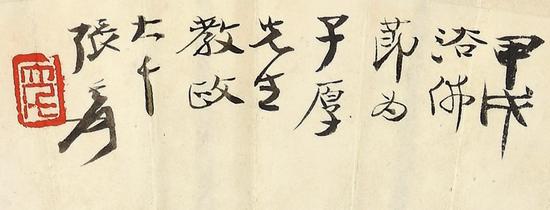 甲戌
浴佛
節为
子厚
先生
教政
大千
張爰
大千